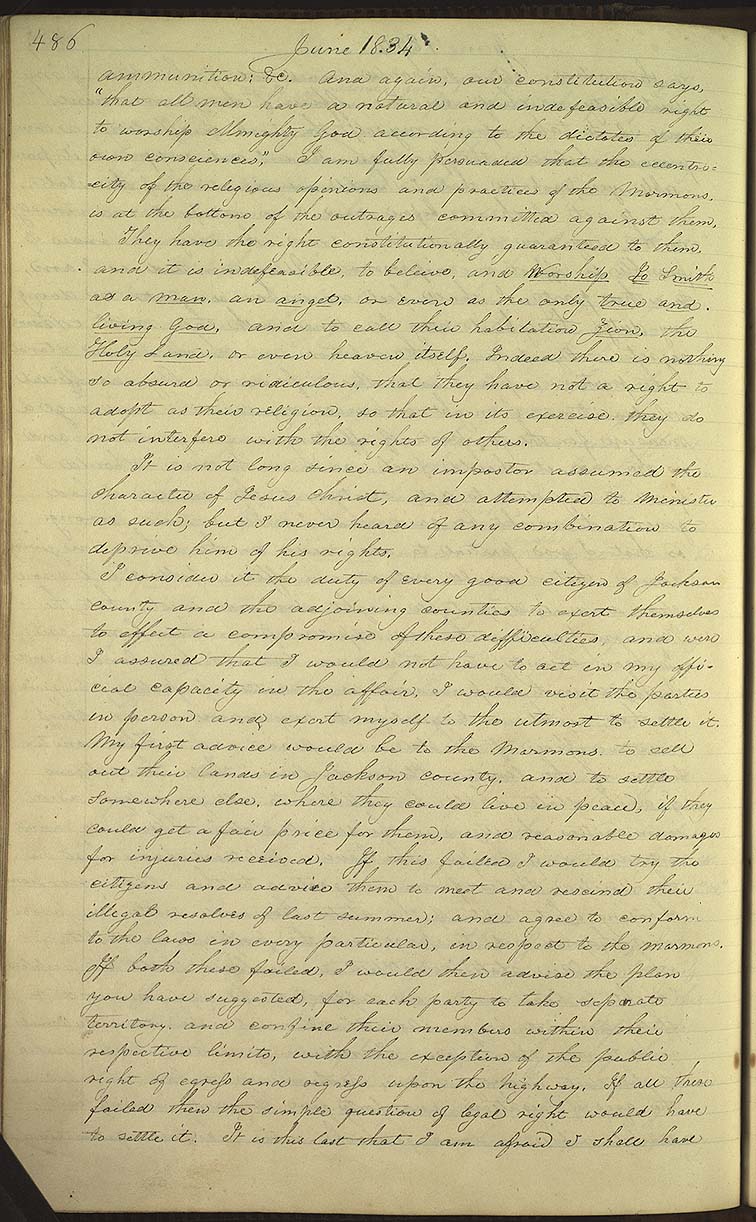 486
June 1834
ammunition; &c. And again, our constitution says,
"that all men have a natural and indefeasible right
to worship Almighty God according to the dictates of their
own consciences." I am fully persuaded that the eccentri=
city of the religious opinions and practices of the Mormons,
is at the bottom of the outrages committed against them.
They have the right constitutionally guaranteed to them,
and it is indefeasible, to beleive, and Worship Jo Smith
as a man, an angel, or even as the only true and
living God, and to call their habitation Zion, the
Holy Land, or even heaven itself. Indeed there is nothing
so absurd or ridiculous, that they have not a right to
adopt as their religion, so that in its exercise, they do
not interfere with the rights of others.
It is not long since an impostor assumed the
character of Jesus Christ, and attempted to minister
as such; but I never heard of any combination to
deprive him of his rights.
I consider it the duty of every good citizen of Jackson
county and the adjoining counties to exert themselves
to effect a compromise of these difficulties, and were
I assured that I would not have to act in my offi-
cial capacity in the affair, I would visit the parties
in person and exert myself to the utmost to settle it.
My first advice would be to the Mormons, to sell
out their lands in Jackson county, and to settle
somewhere else, where they could live in peace, if they
could get a fair price for them, and reasonable damages
for injuries received. If this failed I would try the
citizens and advise them to meet and rescind their
illegal resolves of last summer; and agree to conform
to the laws in every particular, in respect to the Mormons.
If both these failed, I would then advise the plan
you have suggested, for each party to take seperate
territory and confine their members within their
respective limits, with the exception of the public
right of egress and regress upon the highway. If all these
failed then the simple question of legal right would have
to settle it. It is this last that I am afraid I shall have